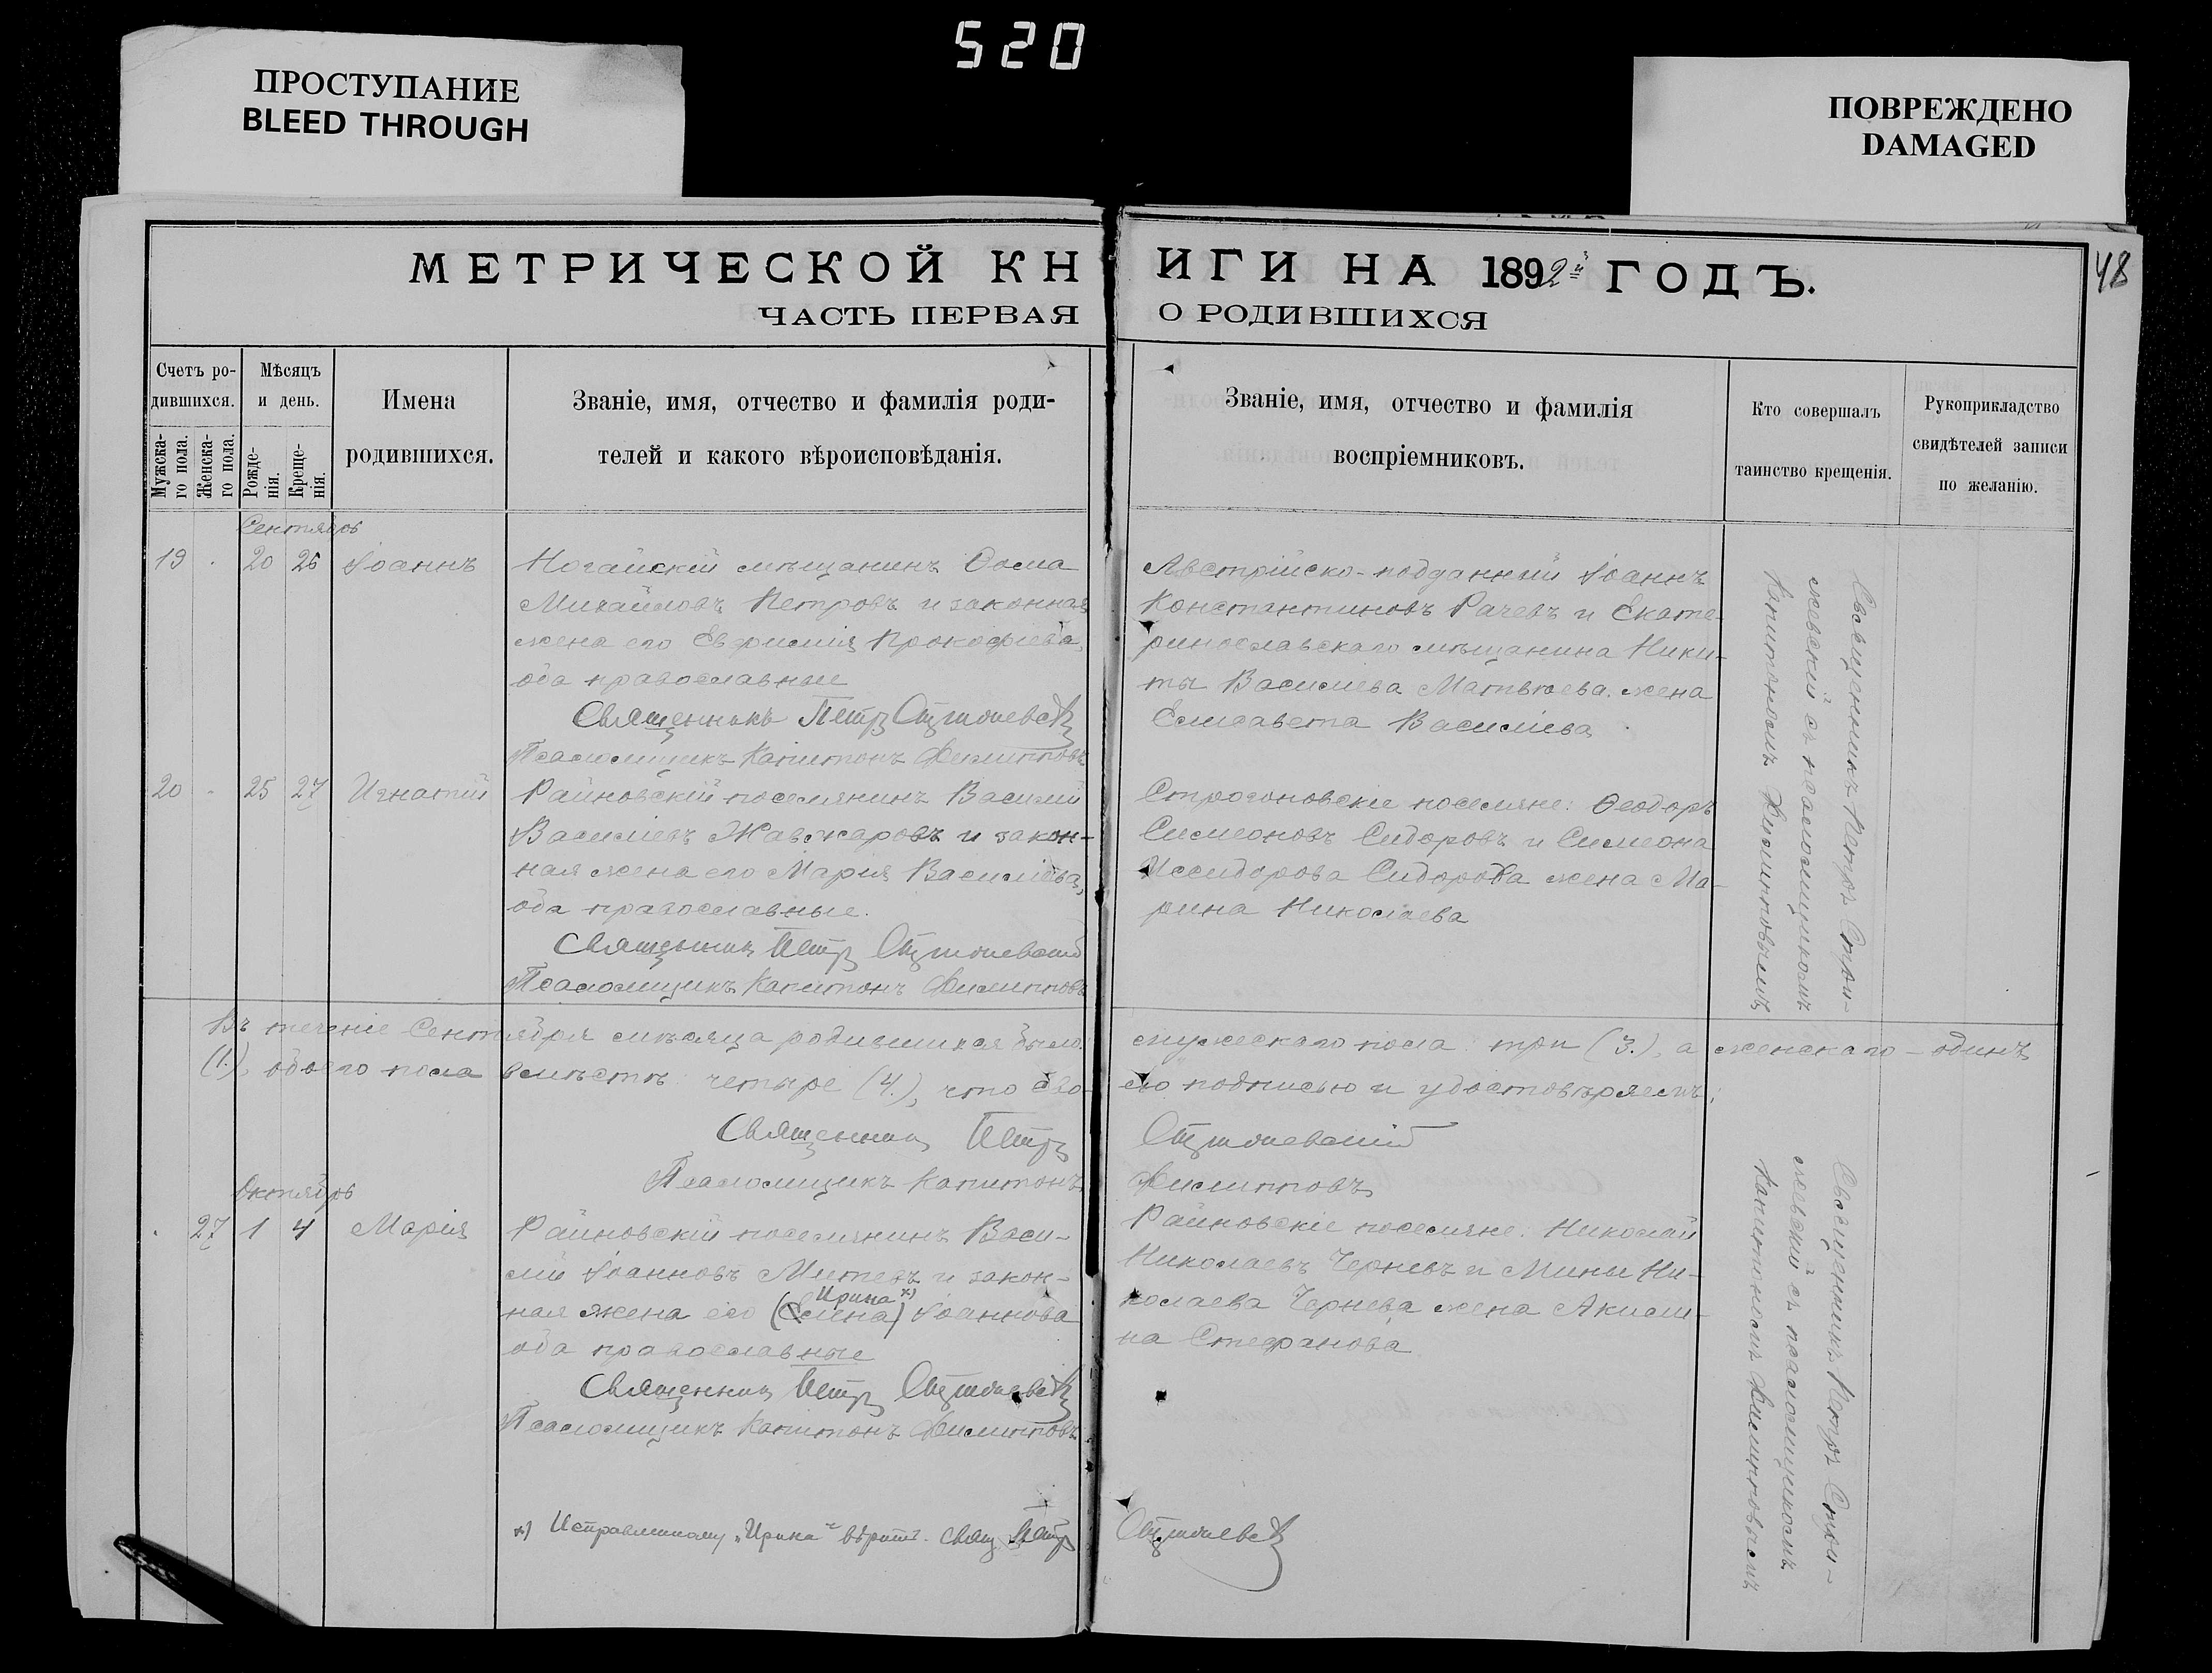 520
ПРОСТУПАНИЕ
BLEED THROUGH
ПОВРЕЖДЕНО
DAMAGED
48
МЕТРИЧЕСКОЙ КНИГИ НА 1892й ГОДЪ.
ЧАСТЬ ПЕРВАЯ О РОДИВШИХСЯ
Счетъ ро-
дившихся.
Мужска-
го пола.
Женска-
го пола.
Мѣсяцъ
и день.
Рожде-
нія.
Креще-
нія.
Имена
родившихся.
Званіе, имя, отчество и фамилія роди-
телей и какого вѣроисповѣданія.
Званіе, имя, отчество и фамилія
воспріемниковъ.
Кто совершалъ
таинство крещенія.
Рукоприкладство
свидѣтелей записи
по желанію.
Сентябрь
19 20 26 Іоаннъ
Ногайскій мѣщанинъ Ѳома
Михайловъ Петровъ и законная
жена его Евфимія Прокофіева,
оба православные
Священникъ Петръ
Псаломщикъ Капитонъ Филипповъ
Австрійско-подданный Іоаннъ
Константиновъ Рачевъ и Екате-
ринославскаго мѣщанина Ники-
ты Василиева Матвѣева жена
Елисавета Василіева
Священникъ Петръ Стри-
жевскій съ псаломщикомъ
Капитономъ Филипповымъ
20 25 27 Игнатій
Райновскій поселянинъ Василій
Василіевъ Жавжаровъ и закон-
ная жена его Марія Василіева,
оба православные.
Священникъ Петръ
Псаломщикъ Капитонъ Филипповъ
Строгоновскіе поселяне: Ѳеодоръ
Симеоновъ Сидоровъ и Симеона
Исидорова Сидорова жена Ма-
рина Николаева
Въ теченіе Сентября мѣсяца родившихся было: мужескаго пола три (3.), а женскаго – одинъ
(1.), обоего пола вмѣстѣ четыре (4.), что сво- ею подписью и удостовѣряемъ:
Священникъ Петръ
Псаломщикъ Капитонъ Филипповъ
Октябрь
27 1 4 Марія
Райновскій поселянинъ Васи-
лій Іоанновъ Митевъ и закон-
Ирина х)
ная жена его (Елена) Іоаннова
оба православные
Священникъ Петръ
Псаломщикъ Капитонъ Филипповъ
Райновскіе поселяне: Николай
Николаевъ Черневъ и Мины Ни-
колаева Чернева жена Акили-
на Стефанова
Священникъ Петръ Стри-
жевскій съ псаломщикомъ
Капитономъ Филипповымъ
х) Исправленному „Ирина“ вѣрить. Свящ. Петръ